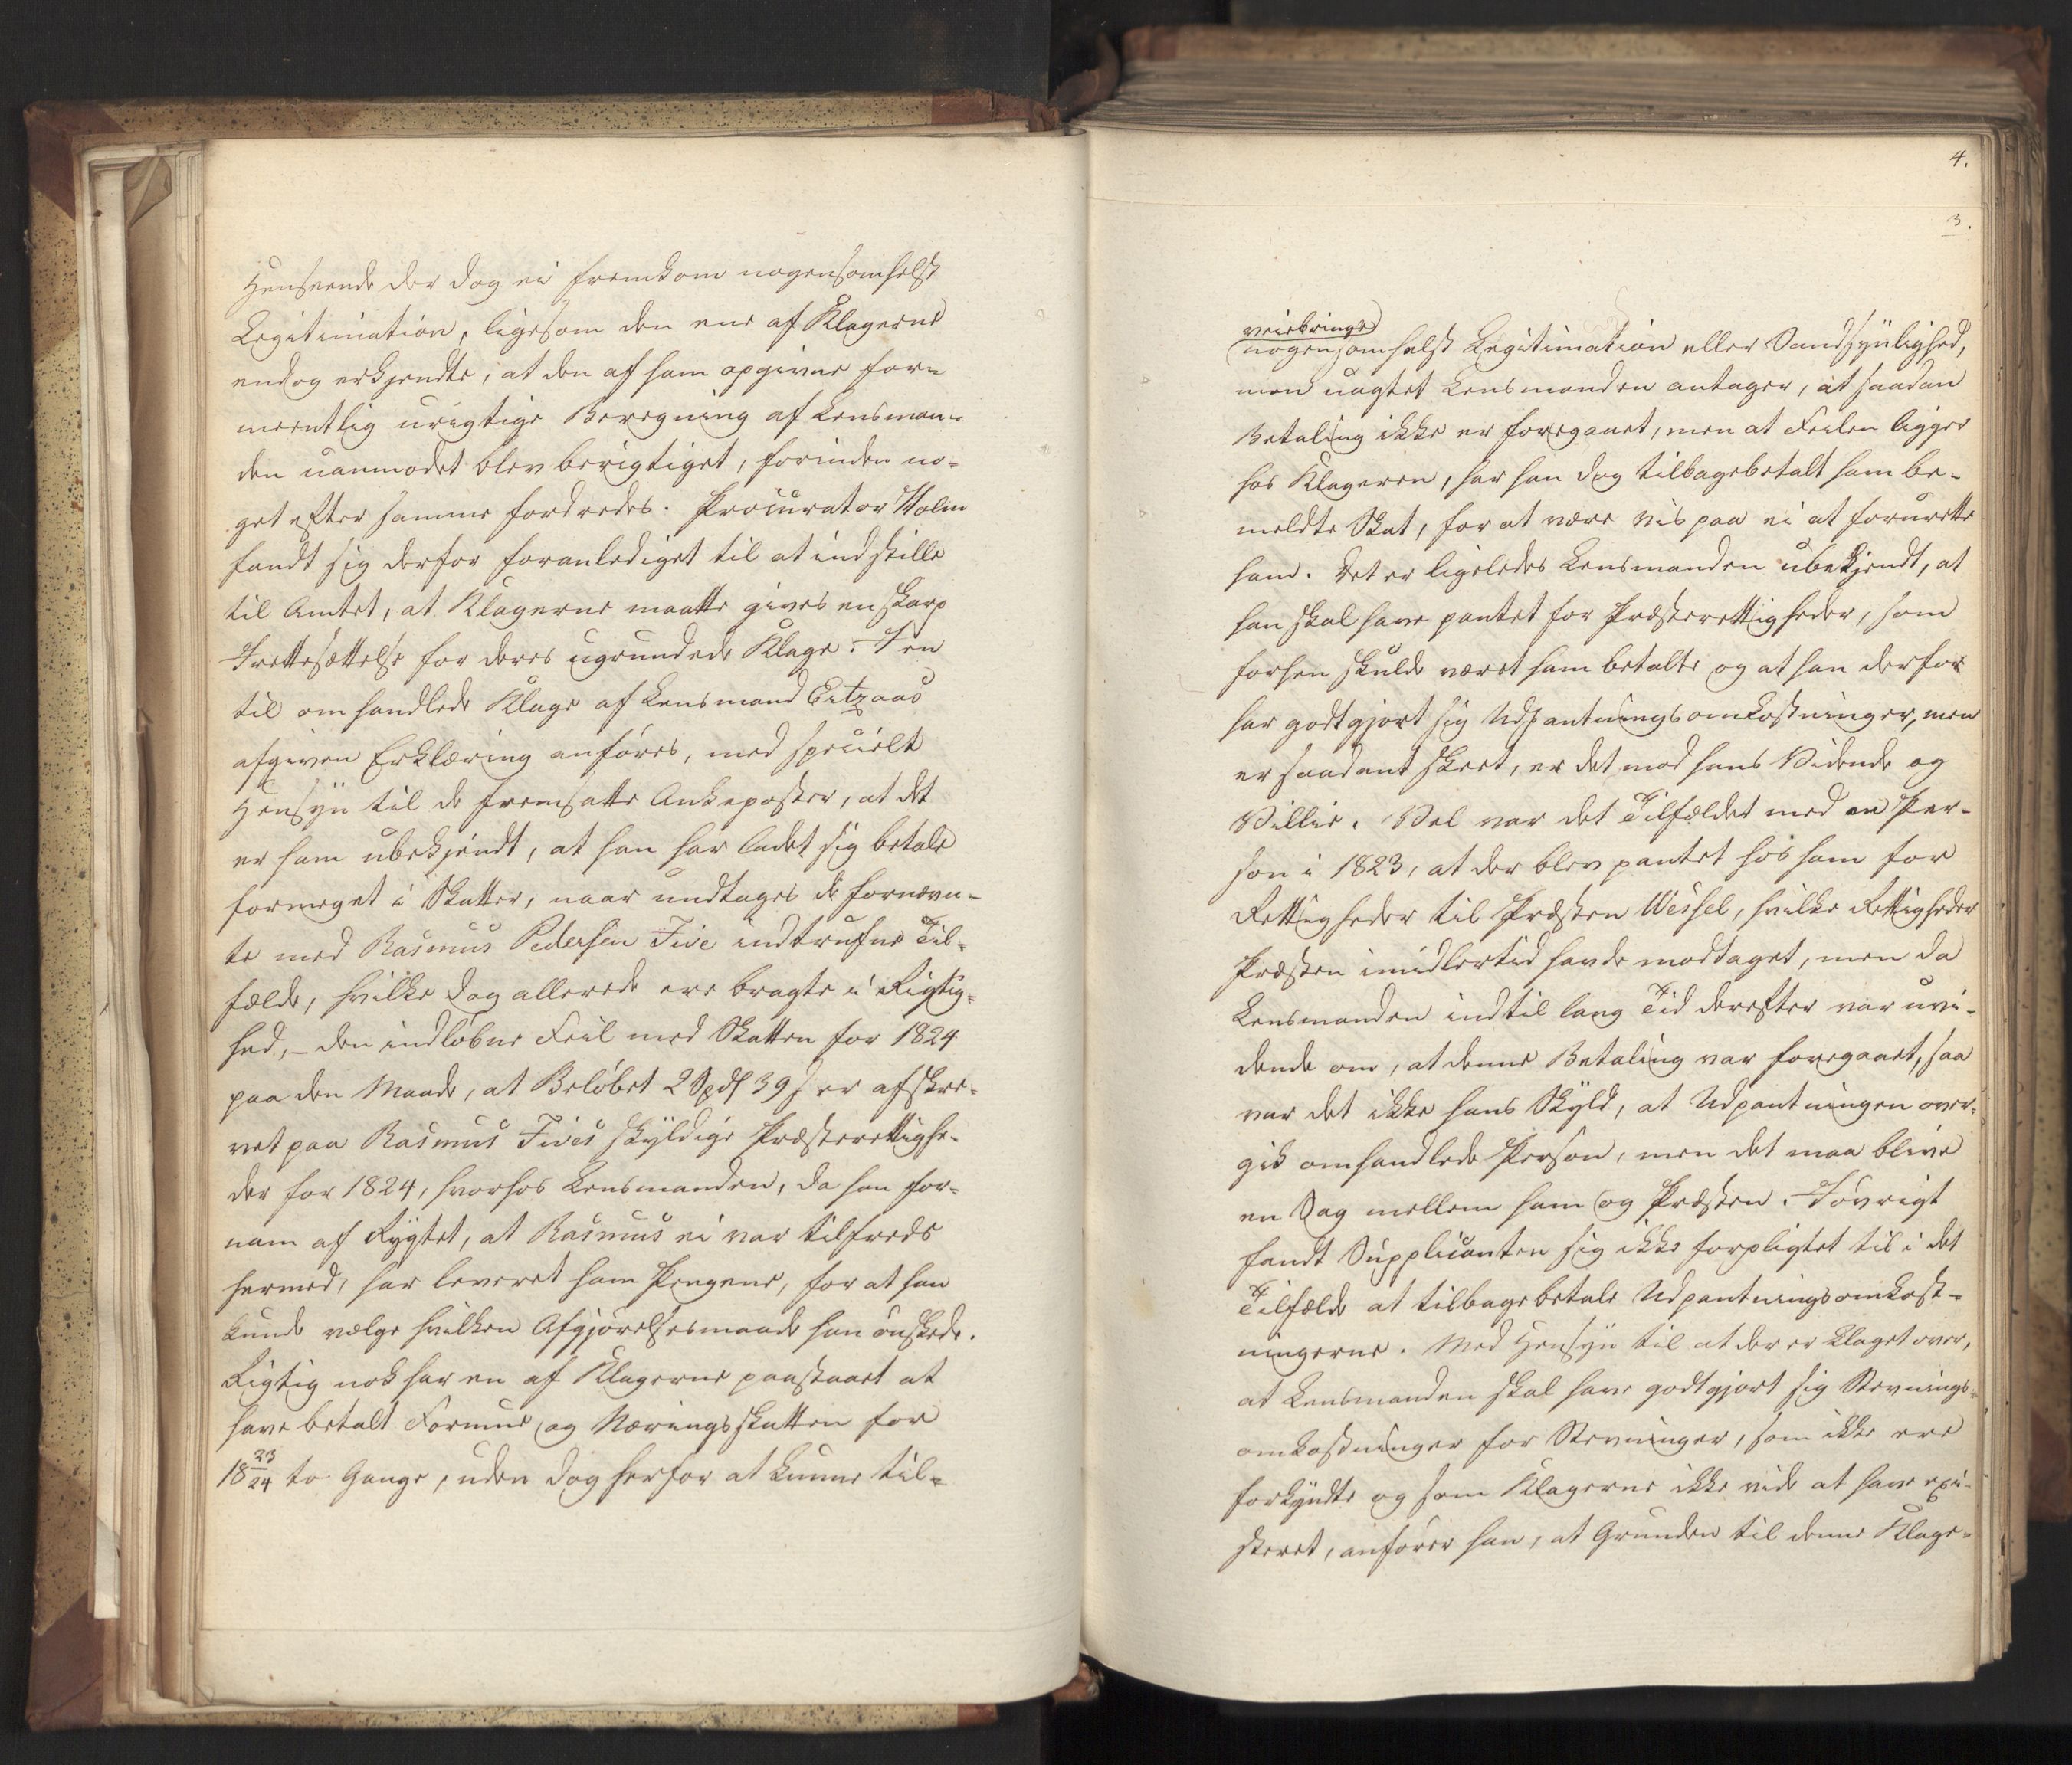 Henseende der dog ei fremkom nogensomhelst
Legitimation, ligesom den ene af Klagerne
endog erkjendte, at den af ham opgivne for=
meentlig urigtige Beregning af Lensman=
den uanmodet blev berigtiget, forinden no=
get efter samme fordredes. Procurator Holm
fandt sig derfor foranlediget til at indstille
til Amtet, at Klagerne maatte gives en skarp
Irettesættelse for deres ugrundede Klage. I en
til omhandlede Klage af Lensmand Eitzaas
afgiven Erklæring anføres, med specielt
Hensyn til de fremsatte Ankeposter, at det
er ham ubekjendt, at han har ladet sig betale
formeget i Skatter, naar undtages de fornævn=
te med Rasmus Pedersen Five indtrufne Til=
fælde, hvilke dog allerede ere bragte i Rigtig=
hed, – den indløbne Feil med Skatten for 1824
paa den Maade, at Beløbet 2 Spd 39 s er afskre=
vet paa Rasmus Fives skyldige Præsterettighe=
der for 1824, hvorhos Lensmanden, da han for=
nam af Rygtet, at Rasmus ei var tilfreds
hermed, har leveret ham Pengene, for at han
kunde vælge hvilken Afgjørelsesmaade han ønskede.
Rigtig nok har en af Klagerne paastaaet at
have betalt Formue og Næringsskatten for
18 23/24 to Gange, uden dog herfor at kunne til=
4.
3.
veiebringe
nogensomhelst Legitimation eller Sandsynlighed,
men uagtet Lensmanden antager, at saadan
Betaling ikke er foregaaet, men at Feilen ligger
hos Klageren, har han dog tilbagebetalt ham be=
meldte Skat, for at være vis paa ei at forurette
ham. Det er ligeledes Lensmanden ubekjendt, at
han skal have pantet for Præsterettigheder, som
forhen skulde været ham betalte og at han derfor
har godtgjort sig Udpantningsomkostninger, men
er saadant skeet, er det mod hans Vidende og
Villie. Vel var det Tilfældet med en Per=
son i 1823, at der blev pantet hos ham for
Rettigheder til Præsten Wessel, hvilke Rettigheder
Præsten imidlertid havde modtaget, men da
Lensmanden indtil lang Tid derefter var uvi=
dende om, at denne Betaling var foregaaet, saa
var det ikke hans Skyld, at Udpantningen over=
gik omhandlede Person, men det maa blive
en Sag mellem ham og Præsten. Iøvrigt
fandt Supplicanten sig ikke forpligtet til i det
Tilfælde at tilbagebetale Udpantningsomkost=
ningerne. Med Hensyn til at der er klaget over,
at Lensmanden skal have godtgjort sig Stevnings=
omkostninger for Stevninger, som ikke ere
forkyndte og som Klagerne ikke vide at have exi=
steret, anfører han, at Grunden til denne Klage=